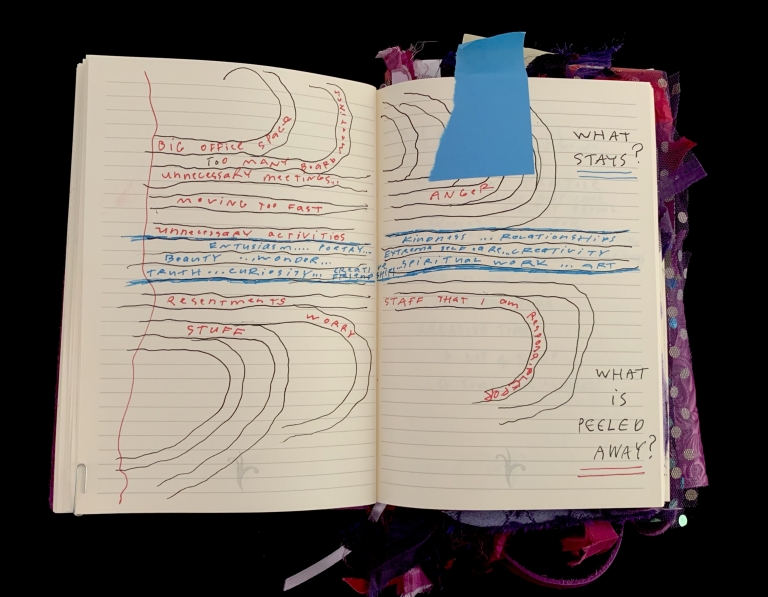 BIG OFFICE SPACE
TOO MANY BOARD MEETINGS
UNNECESSARY MEETINGS...
MOVING TOO FAST
UNNECESSARY ACTIVITIES
ENTUSIASM.... POETRY...
BEAUTY ...WONDER...
TRUTH...CURIOSITY... CREATIVE FRIENDSHIPS
RESENTMENTS
WORRY
STUFF
WHAT
STAYS?
ANGER
KINDNESS ... RELATIONSHIPS
EXTREME SELF CARE...CREATIVITY
...SPIRITUAL WORK ... ART
STAFF THAT I AM RESPONSIBLE FOR
WHAT
IS
PEELED
AWAY?